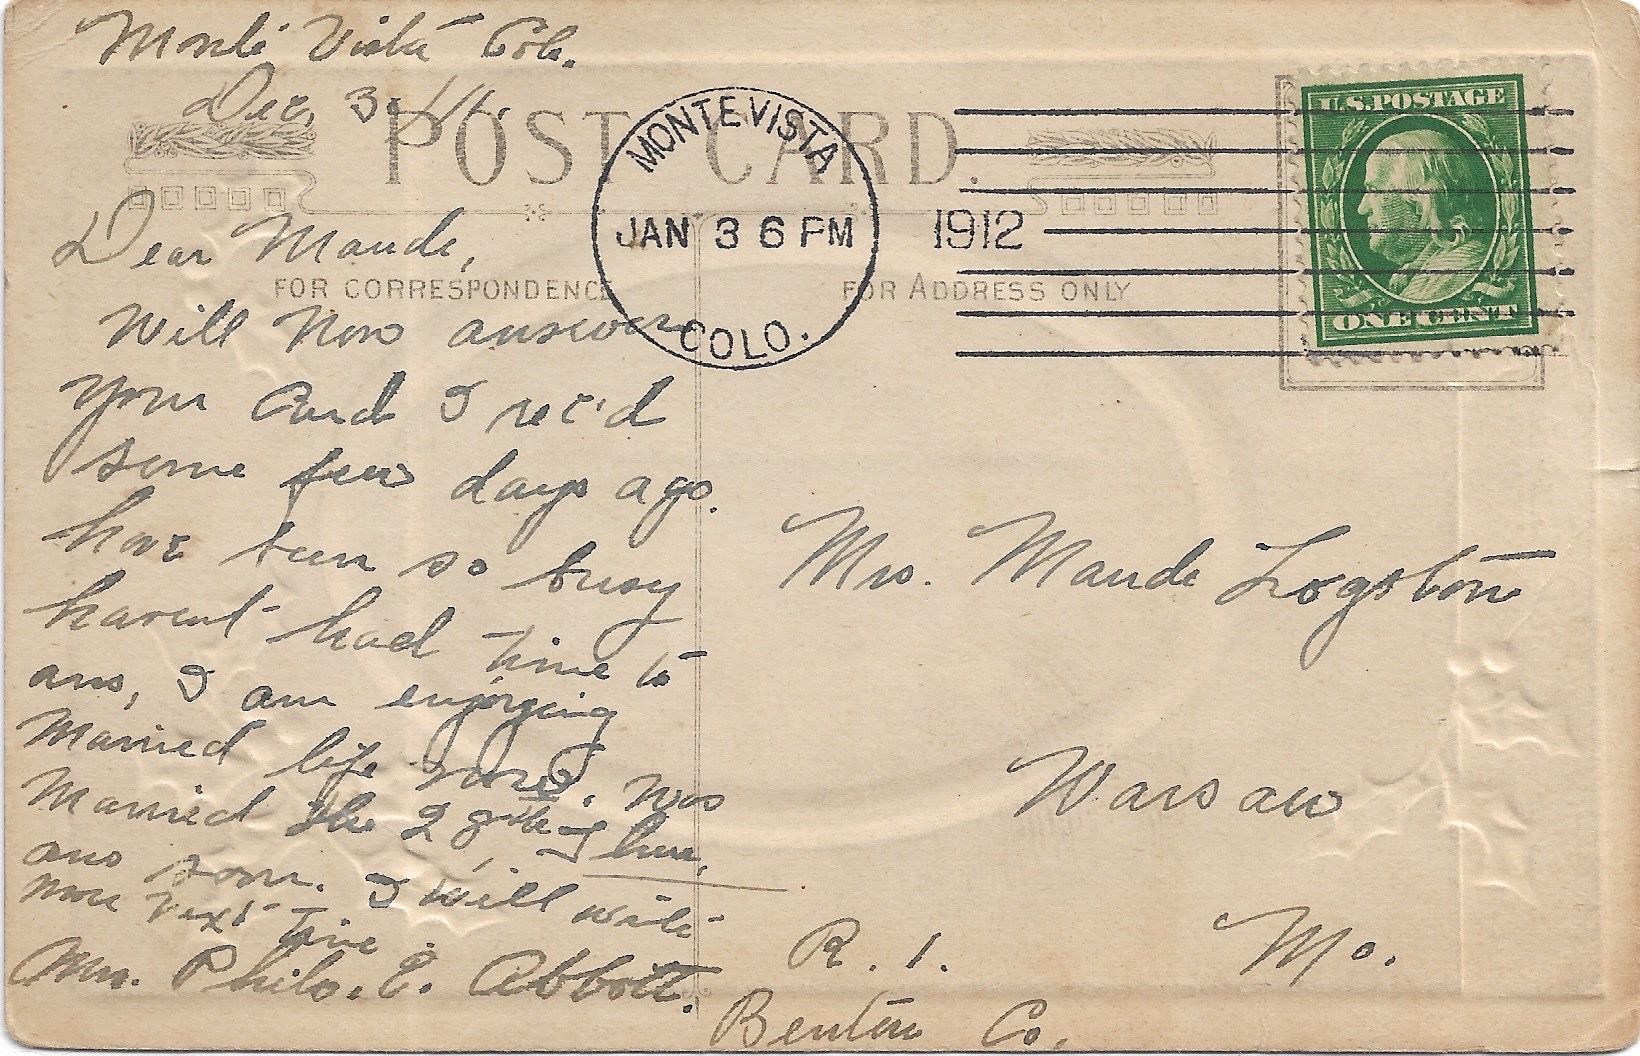 Monte Vista Colo.
Dec. 3, 11.
POST CARD.
MONTE VISTA
JAN 3 6 PM
COLO.
1912
U.S. POSTAGE
ONE CENT
FOR CORRESPONDENCE
FOR ADDRESS ONLY
Dear Maude,
Will Now answer
your Card I rec'd
some few days ago.
have been so busy
havent had time to
ans, I am enjoying
Married life now. Was
Married the 28th here,
ans soon. I will write
more next Time.
Mrs. Philo. E. Abbott.
Mrs. Maude Logston
Warsaw
R. 1. Mo.
Benton Co.